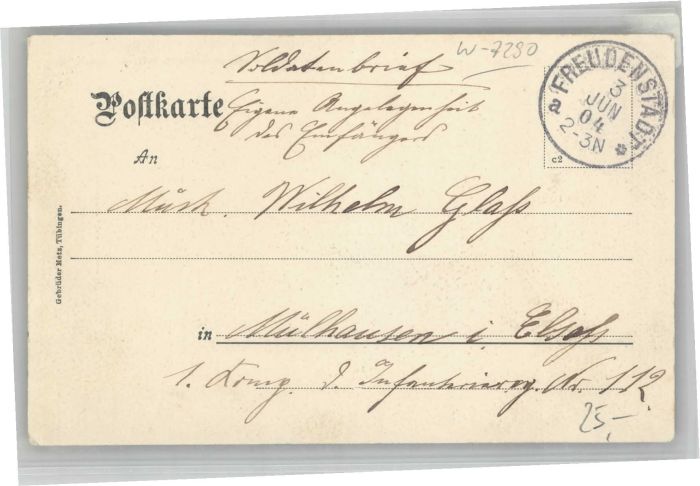 W-7290
Soldatenbrief
Postkarte
Eigene Angelegenheit
des Empfängers
FREUDENSTADT
3
JUN
04
2-3N
a
c2
An
Musk. Wilhelm Glaß
Gebrüder Metz, Tübingen.
in Mülhausen i. Elsaß
1. Komp. d. Infanterierg. Nr. 112
25,-